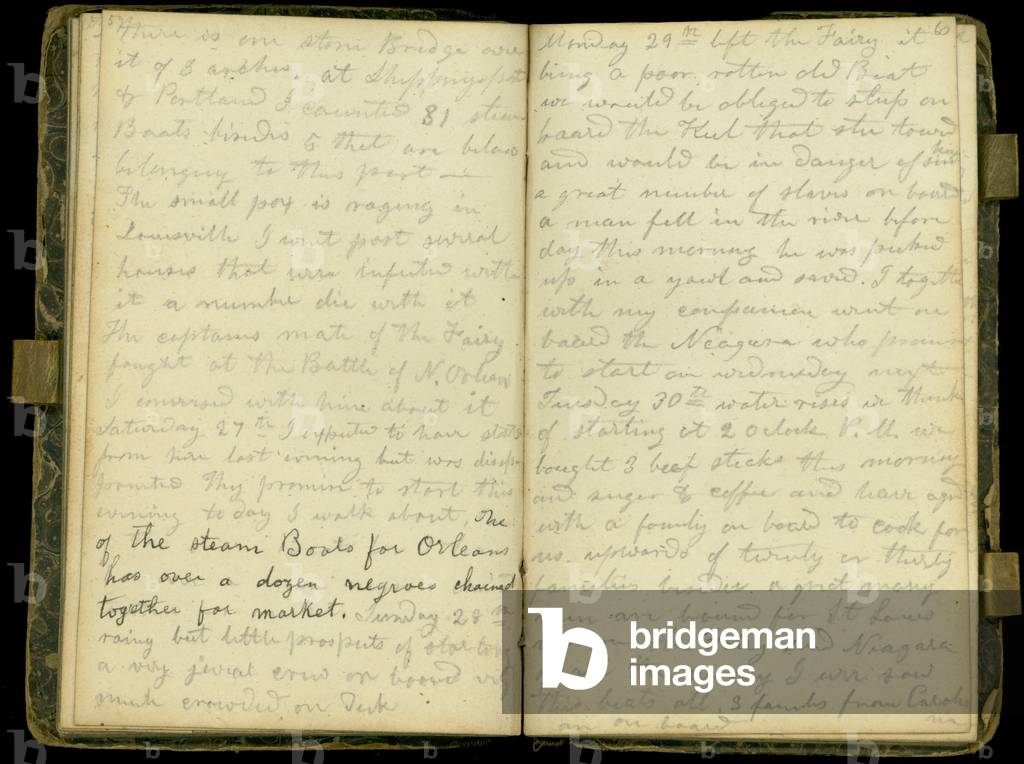 59
There is one stone Bridge over
it of 3 arches. at Shippingsport
& Portland I counted 81 steam
Boats besides 5 that are below
belonging to this port —
The small pox is raging in
Louisville I went past several
houses that were infected with
it a number die with it
The captains mate of the Fairy
fought at the Battle of N. Orleans
I conversed with him about it
Saturday 27th I expected to have started
from here last evening but was disap-
pointed They promise to start this
evening to day I walk about, One
of the steam Boats for Orleans
has over a dozen negroes chained
together for market. Sunday 28th
rainy but little prospects of starting
a very jovial crew on board very
much crowded on Deck
60
Monday 29th left the Fairy it
being a poor rotten old Boat
we would be obliged to sleep on
board the Keel that she towed
and would be in danger of
a great number of slaves on board
a man fell in the river before
day this morning he was picked
up in a yawl and saved. I together
with my companion went on
board the Niagara who promises
to start on wednesday next
Tuesday 30th water rises we think
of starting at 2 Oclock P.M. we
bought 3 beef steaks this morning
and sugar & coffee and have agreed
with a family on board to cook for
us. upwards of twenty or thirty
families besides a great many
men are bound for St. Louis
Niagara
I ever saw
this beats all, 3 families from Carolina
on board
bridgeman
images